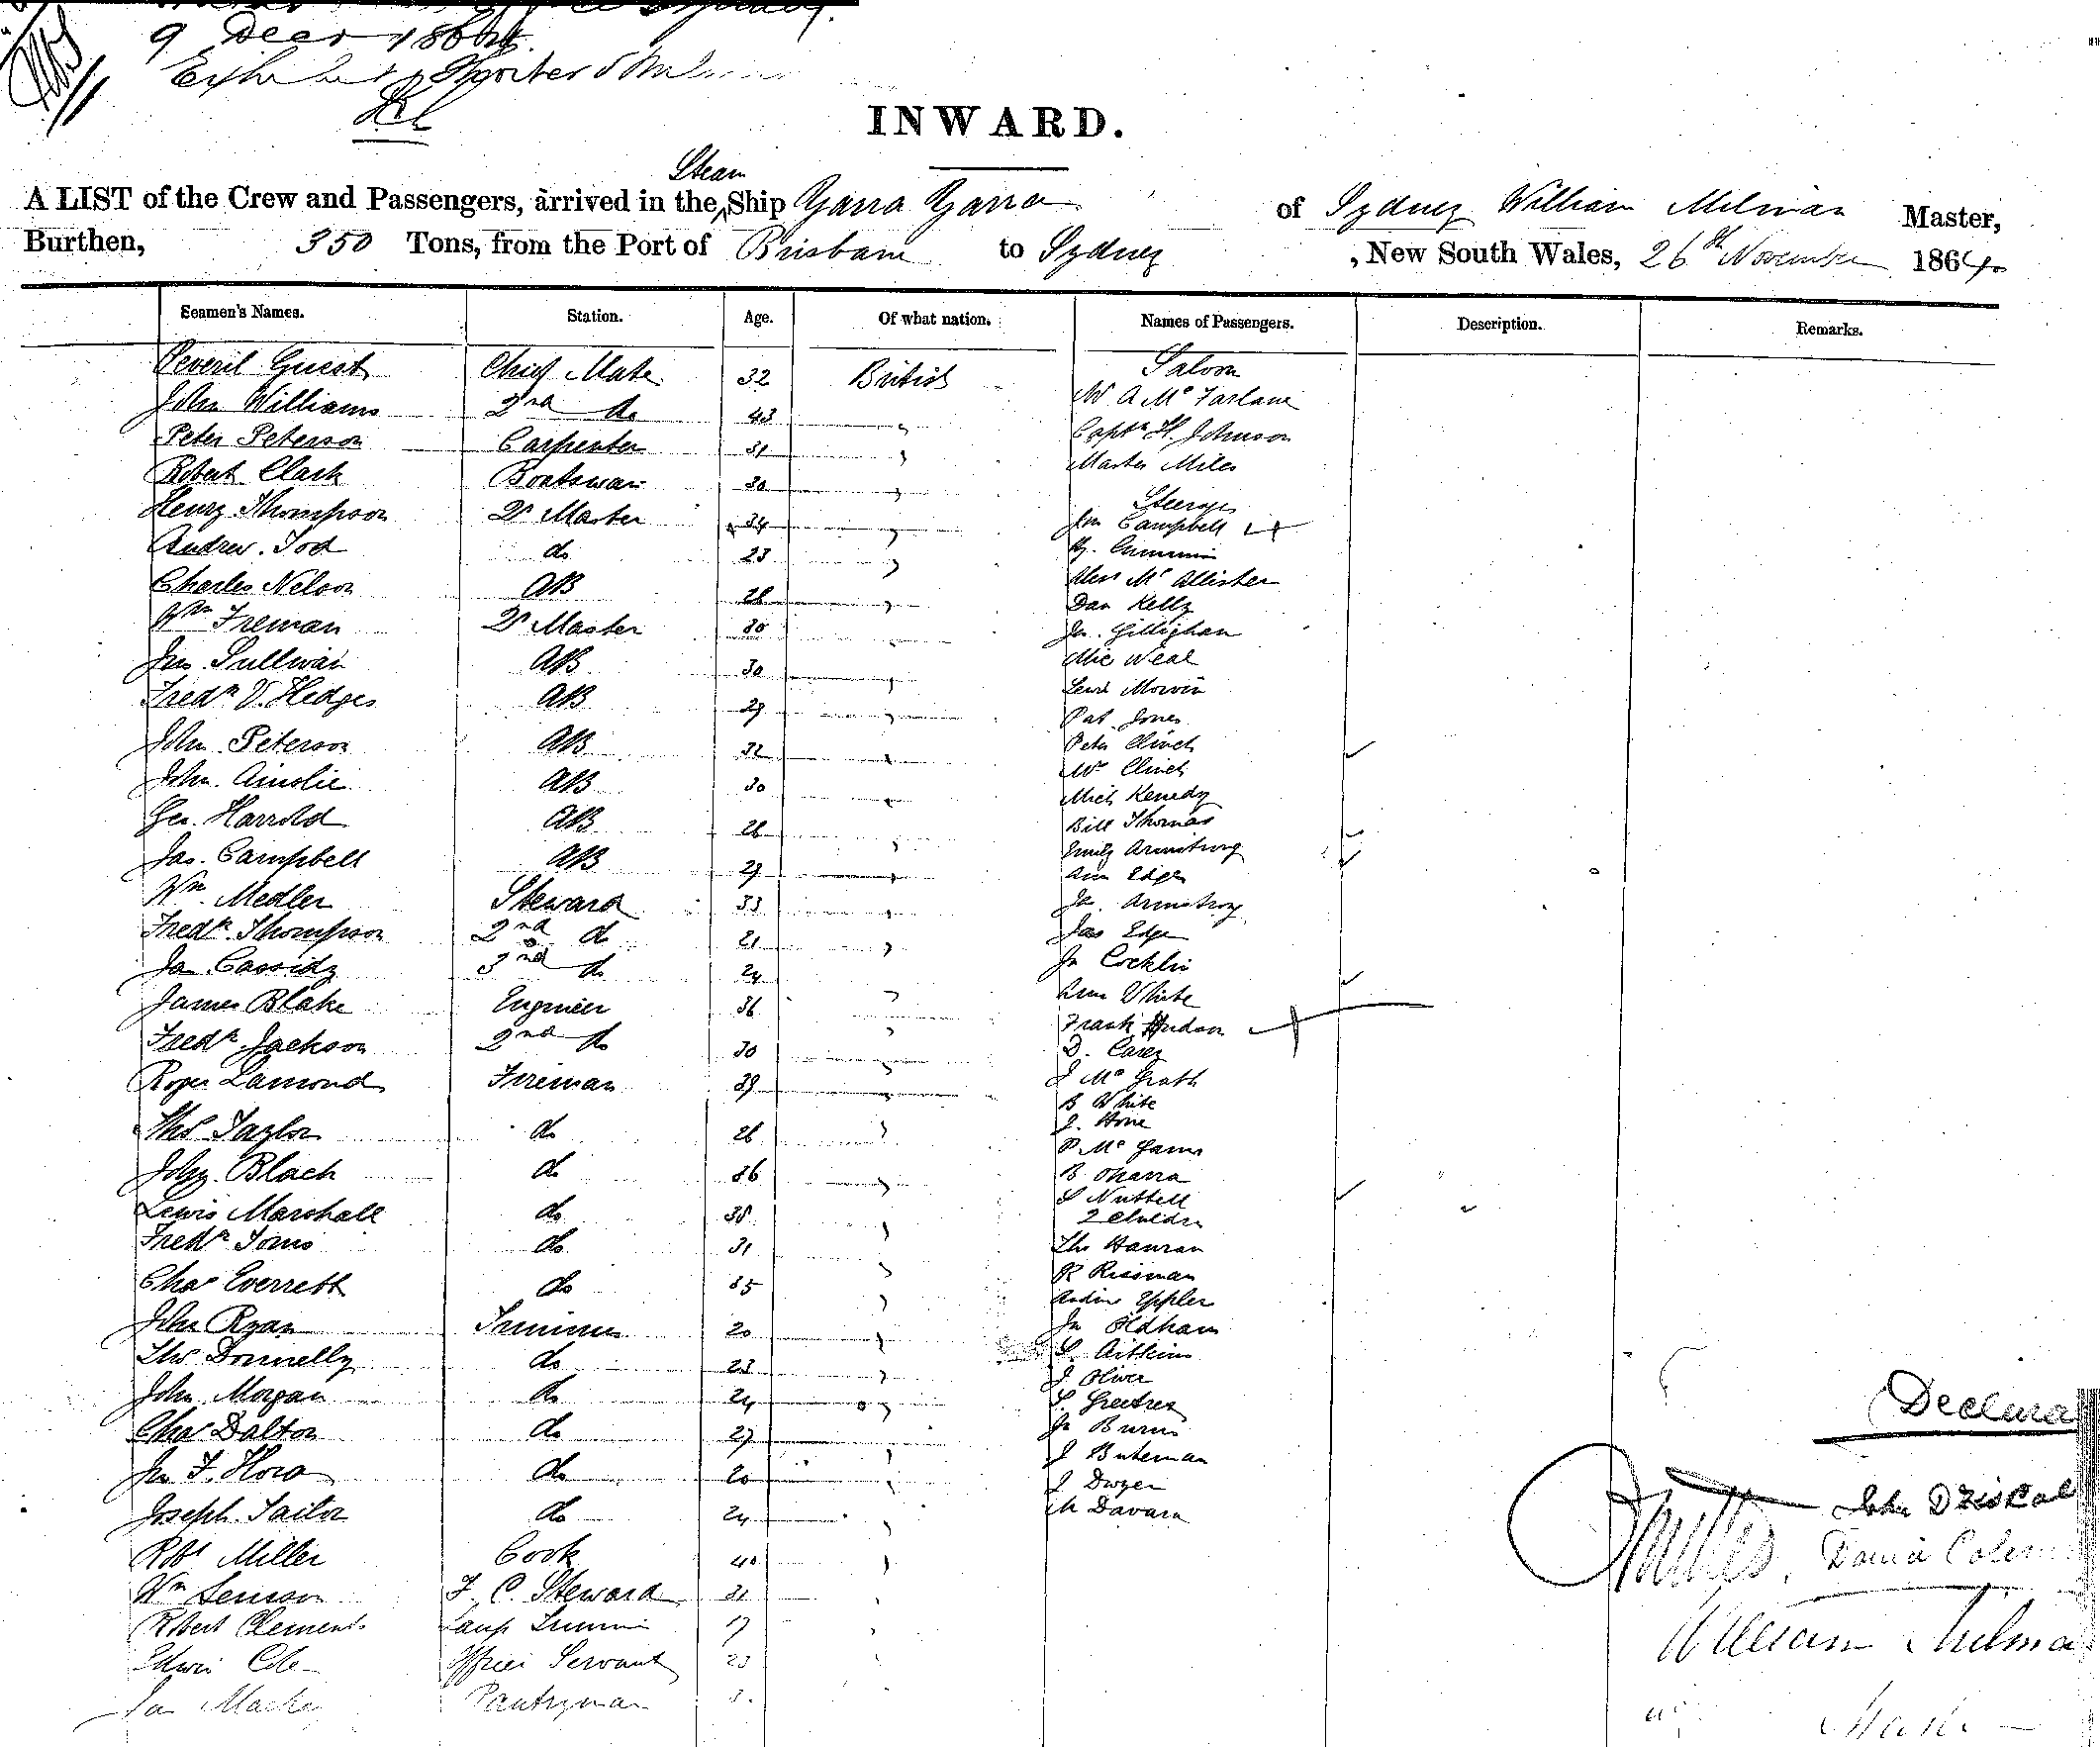 9 Decr 1864
INWARD.
A LIST of the Crew and Passengers, arrived in the Steam Ship Yarra Yarra of Sydney William Milman Master,
Burthen, 350 Tons, from the Port of Brisbane to Sydney , New South Wales, 26th November 1864
Seamen's Names. Station. Age. Of what nation. Names of Passengers. Description. Remarks.
Peveril Guest Chief Mate 32 British Saloon
John Williams 2nd do 43 " Mr A McFarlane
Peter Peterson Carpenter 31 " Captn H. Johnson
Robert Clark Boatswain 30 " Master Miles
Steerage
Henry Thompson Qr Master 34 " Jno Campbell
Andrew Tod do 23 " Hy. Cummin
Charles Nelson AB 28 " Alexr McAllister
Dan Kelly
Wm Freman Qr Master 30 " Jn. Gillighan
Jno Sullivan AB 30 " Mic Neal
Fredk V. Hedges AB 29 " Lewis
Pat Jones
John Peterson AB 32 " Peter Clinch
John Ainslie AB 30 " Mrs Clinch
Mich Kenedy
Geo. Harrold AB 28 " Bill Thomas
Jas. Campbell AB 29 " Emily Armstrong
Ann Edge
Wm Medler Steward 33 " Jn. Armstrong
Fredk Thompson 2nd do 21 " Jas Edge
Ja Cassidy 3rd do 24 " Jn Cocklin
James Blake Engineer 36 " Ann White
Frank Hudson
Fredk Jackson 2nd do 30 " D. Carey
Roger Lamond Fireman 39 " J McGrath
B White
Thos Taylor do 26 " J. Hone
P. McGann
John Black do 36 " B Oharra
S Nuttell
Lewis Marshall do 38 " 2 Children
Fredk Toms do 31 " Thos Hanran
R Rissman
Chas Everrett do 35 " Andrew Eppler
John Ryan Trimmer 20 " Jn Oldham
Thos Donnelly do 23 " S. Aitkins
J Oliver
John Morgan do 24 " S. Greetrex
Chas Dalton do 27 " Jn Burns
J Buteman
Jn F. Hora do 20 " J Dwyer
Joseph Sailor do 24 " M Davara
Robt Miller Cook 40 "
Wm Senson F. C. Steward 31 "
Robert Clements Lamp Trimmer 17 "
Edwin Cole Officers Servant 23 "
Jas Pantryman
John Driscal
William Milman